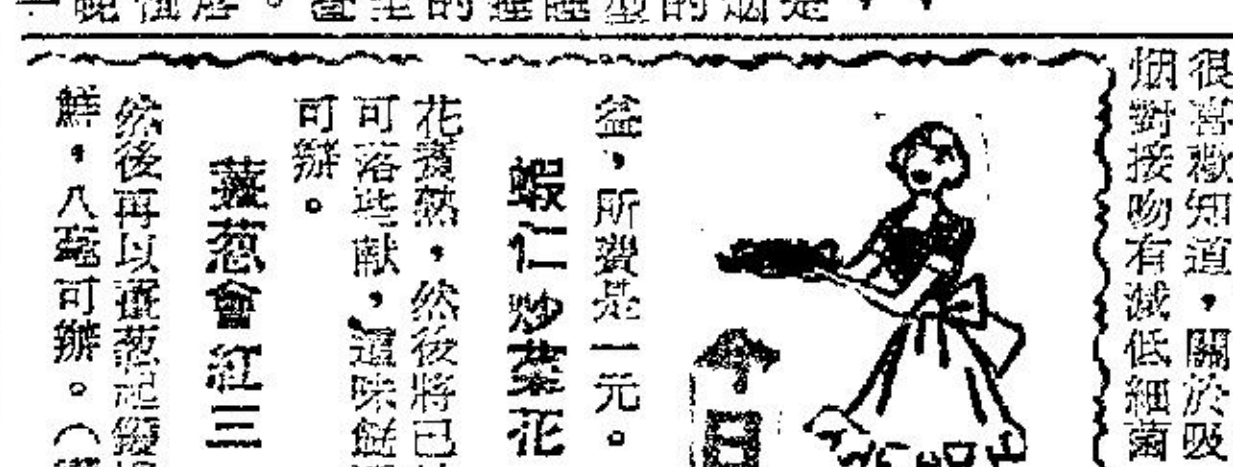 很喜歡知道，關於吸
烟對接吻有減低細菌
今日
盆，所費是一元。
蝦仁炒菜花
花煮熱，然後將已
可落些献，這味餸
可辦。
薑葱會紅三
然後再以薑葱起鑊
鮮，八毫可辦。（